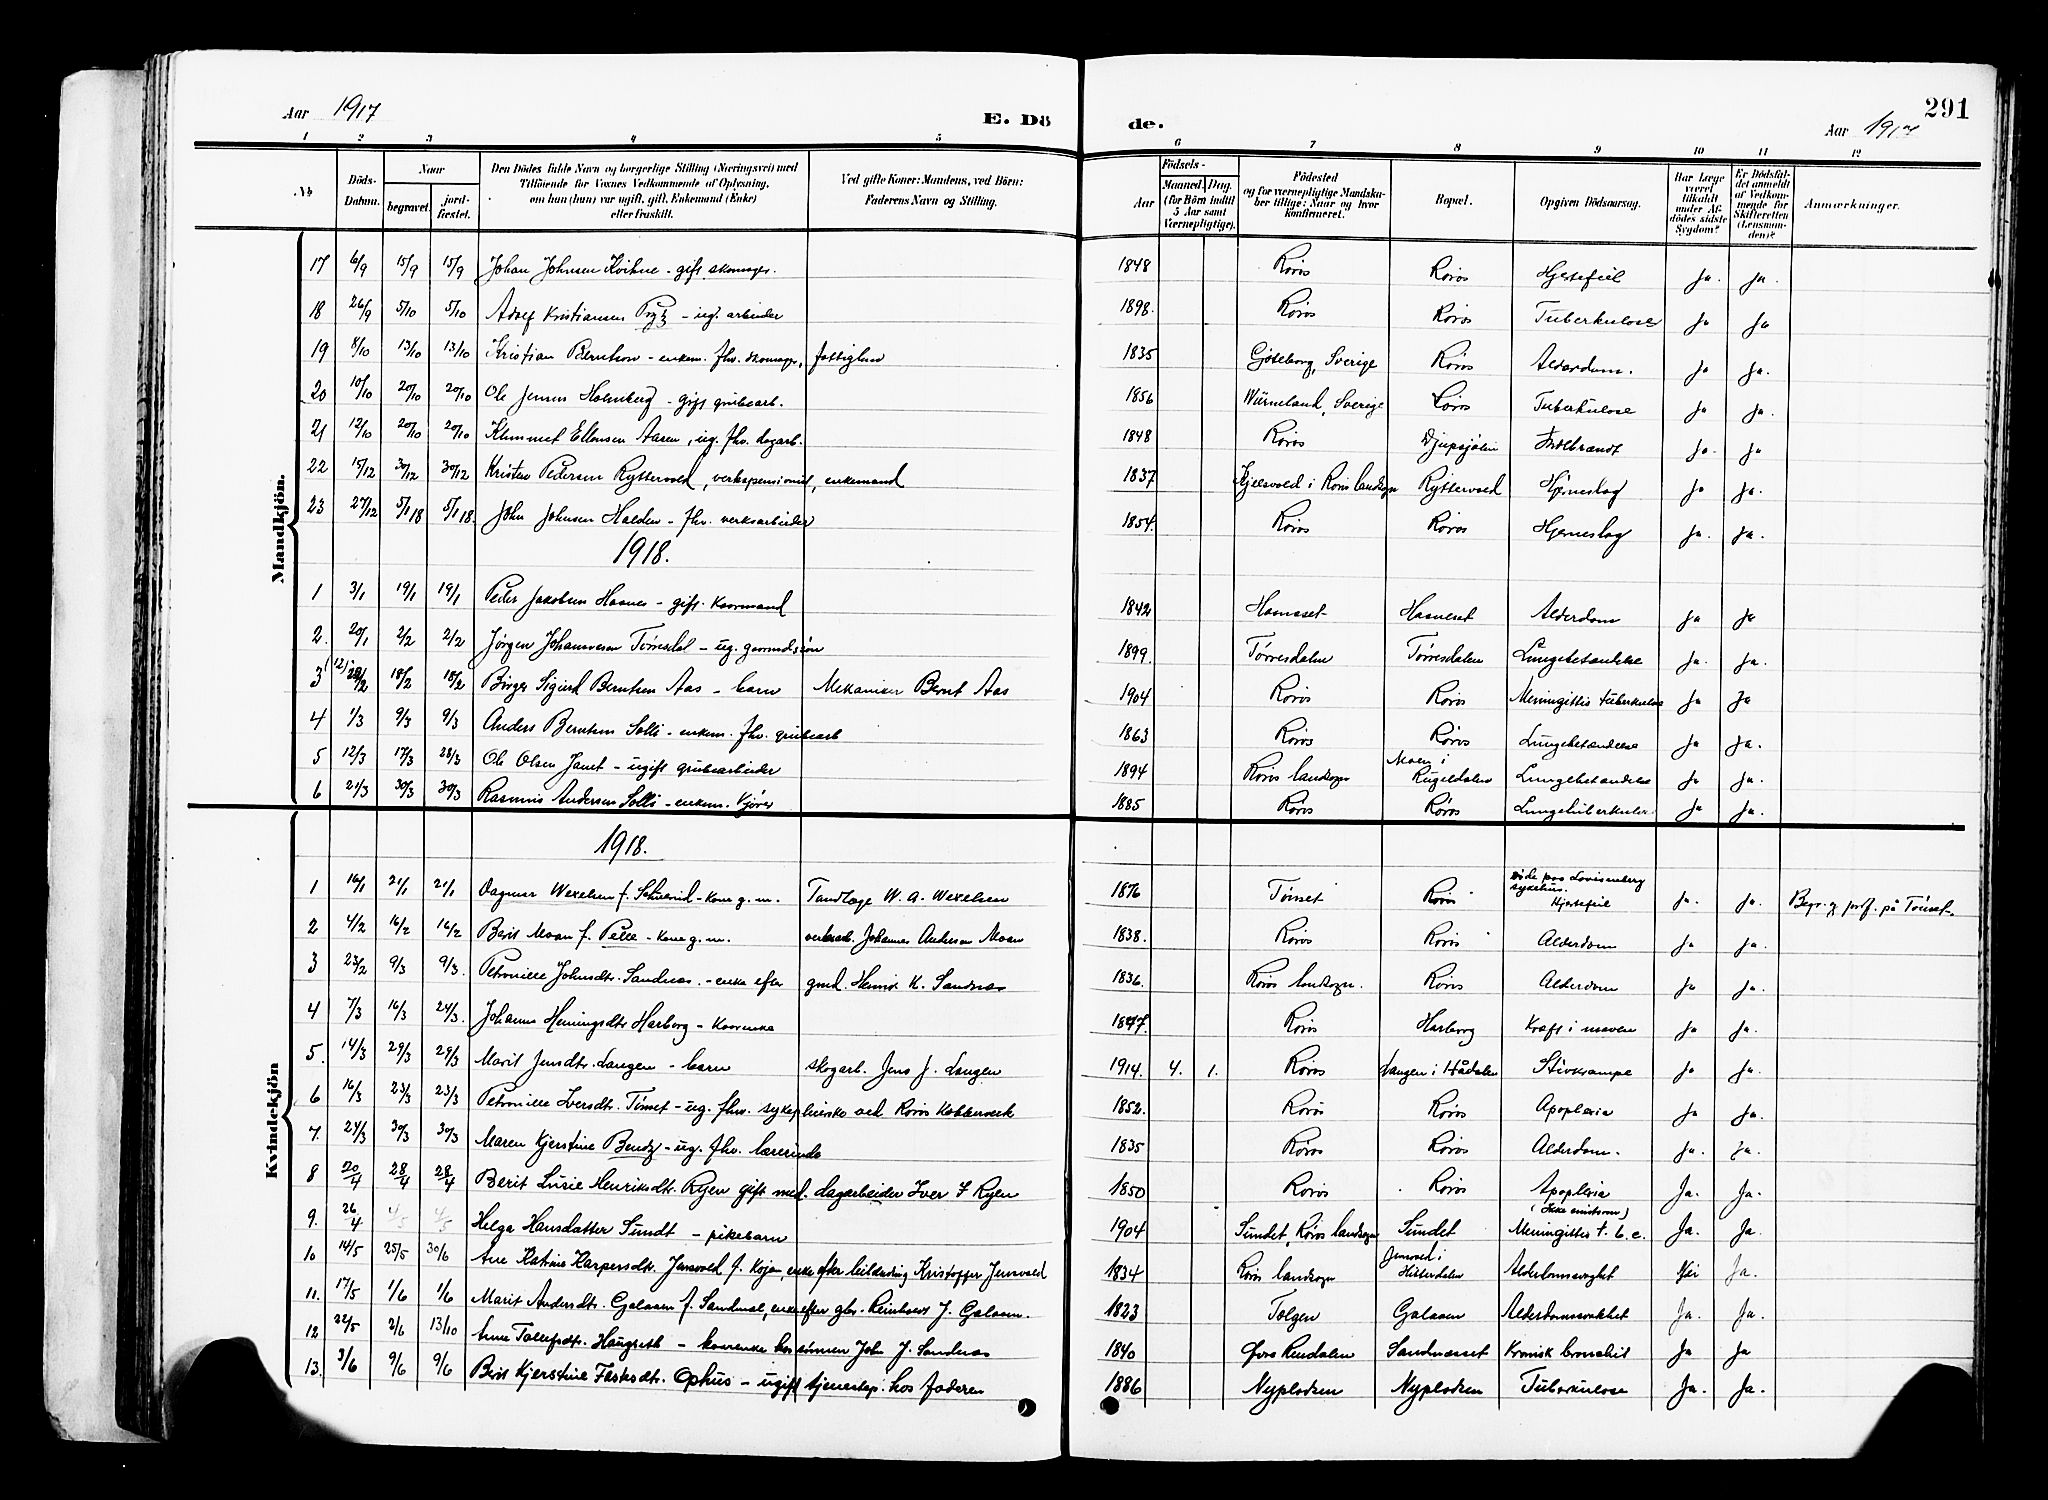 Aar 1917
E. Dö
de.
291
Aar 1917
1 2 3 4 5 6 7 8 9 10 11 12
No
Döds-Datum.
Naar
begravet.
jord-fæstet.
Den Dödes fulde Navn og borgerlige Stilling (Næringsvei) med
Tilföiende for Voxnes Vedkommende af Oplysning,
om hun (hun) var ugift, gift, Enkemand (Enke)
eller fraskilt.
Ved gifte Koner: Mandens, ved Börn:
Faderens Navn og Stilling.
Födsels-
Aar
Maaned. Dag.
(for Börn indtil
5 Aar samt
Værnepligtige).
Födested
og for værnepligtige Mandska-
ber tillige: Naar og hvor
konfirmeret.
Bopæl.
Opgiven Dödsaarsag.
Har Læge
været
tilkaldt
under Af-
dödes sidste
Sygdom?
Er Dödsfal-
det anmeldt
af Vedkom-
mende for
Skifteretten
(Lensman-
den)?
Anmærkninger.
Mandkjön.
17 6/9 15/9 15/9 Johan Johnsen Kvikne - gift skomager. 1848 Røros Røros Hjertefeil Ja. Ja.
18 26/9 5/10 5/10 Adolf Kristiansen Prytz - ug. arbeider 1898. Røros Røros Tuberkulose Ja Ja
19 8/10 13/10 13/10 Kristian Berntson - enkem. fhv. skomager, fattiglem 1835 Gøteborg, Sverige Røros Alderdom. Ja Ja.
20 10/10 20/10 20/10 Ole Jensen Holmberg - gift grubearb. 1856 Wärmland, Sverige Røros Tuberkulose Ja Ja.
21 12/10 20/10 20/10 Klemmet Ellensen Aasen, ug. fhv. dagarb. 1848 Røros Djupsjølien Koldbrand Ja. Ja
22 15/12 30/12 30/12 Kristen Pedersen Ryttervold, verkspensionist, enkemand 1837 i Røros landsogn Ryttervold Hjerneslag Ja Ja.
23 27/12 5/1 18 5/1 18. John Johnsen Halden - fhv. verksarbeider 1854. Røros Røros Hjerneslag Ja. Ja.
1918.
1 3/1 19/1 19/1 Peder Jakobsen Haanes - gift. Kaarmand 1842 Haaneset Haaneset Alderdom Ja Ja
2. 20/1 2/2 2/2 Jørgen Johannesen Tørresdal - ug. gaardm.søn 1899. Tørresdalen Tørresdalen Lungebetændelse Ja. Ja.
3 (12) 18/2 18/2 Birger Sigurd Berntsen Aas - barn Mekaniker Bernt Aas 1904 Røros Røros Meningittis tuberkulose Ja Ja
4 1/3 9/3 9/3 Anders Berntsen Solli - enkem. fhv. grubearb 1863 Røros Røros Lungebetændelse Ja Ja.
5 12/3 17/3 28/3 Ole Olsen Jamt - ugift grubearbeider 1894 Røros landsogn Moen i Rugeldalen Lungebetændelse Ja Ja.
6 21/3 30/3 30/3 Rasmus Andersen Solli - enkem. kjører 1885 Røros Røros Lungetuberkulose Ja Ja.
Kvindekjön
1918.
1 16/1 21/1 21/1 Dagmar Wexelsen f. - Kone g.m. Tandlæge W. A. Wexelsen 1876 Tønset Røros døde paa Lovisenberg sykehus. Hjertefeil Ja. Ja. Begr. og jordf. på Tønset.
2 4/2 16/2 16/2 Berit Moan f. Pelle - Kone g.m. verksarb. Johannes Andersen Moan 1838. Røros Røros Alderdom Ja Ja.
3 23/2 9/3 9/3. Petronille Johnsdtr. Sandnæs. - enke efter gmd. Henrik K. Sandnæs 1836. Røros landsogn. Røros Alderdom Ja Ja.
4 7/3 16/3 24/3. Johanne Henningsdtr Harborg - Kaarenke 1847. Røros Harborg Kræft i maven Ja Ja.
5. 14/3 29/3 29/3 Marit Jensdtr. Langen - barn skogarb. Jens J. Langen 1914. 4. 1. Røros Langen i Hådalen Stivkrampe Ja Ja.
6 16/3 23/3 23/3 Petronille Iversdtr. Tønset - ug. fhv. sykepleierske ved Røros Kobberverk 1852. Røros Røros Apoplexia Ja Ja.
7. 24/3 30/3 30/3 Maren Kjerstine Bendz - ug. fhv. lærerinde 1835 Røros Røros Alderdom. Ja. Ja.
8 20/4 28/4 28/4 Berit Lusie Henriksdtr. Ryen gift med. dagarbeider Iver Ryen 1850 Røros Røros Apoplexia Ja. Ja.
9. 26/4 4/5 4/5 Helga Hansdatter Sundt - pikebarn 1904 Sundet, Røros landsogn Sundet (Ikke smitsom) Meningittis t. b. c. Ja. Ja.
10 14/5 25/5 30/6 Ane Katrine Kaspersdtr. Jensvold f. Kojan, enke efter Kristoffer Jensvold 1834 Røros landsogn Jensvold i Hitterdalen Alderdomssvaghet Nei Ja.
11. 17/5 1/6 1/6 Marit Andersdtr. Galaaen f. Sandmæl, enke efter gbr. Reinhart J. Galaaen. 1823 Tolgen Galaaen Alderdomssvakhet Ja. Ja.
12 22/5 2/6 13/10 Anne Tollefsdtr. Haugseth - kaarenke hos sønnen John J. Sandnæs 1840 Øvre Rendalen Sandnæsset Kronisk bronchit Ja Ja
13. 3/6 9/6 9/6 Berit Kjerstine Ophus - ugift tjenestep. hos faderen 1886 Nypladsen Nypladsen Tuberkulose Ja. Ja.